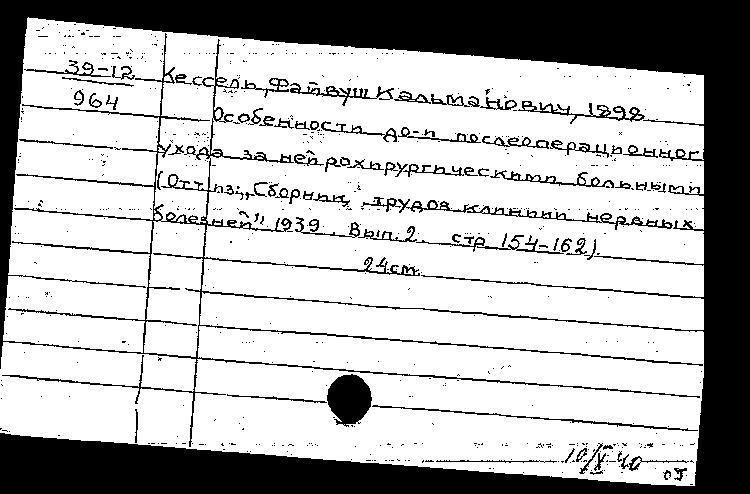 39-12
964
Кессель, Файвуш Кальманович, 1898
Особенности до-п послеоперационног
ухода за нейрохирургическими больными
(Отт. из: „Сборник трудов клиники нервных
болезней" 1939. Вып. 2. стр 154-162).
24 см.
10/X 40